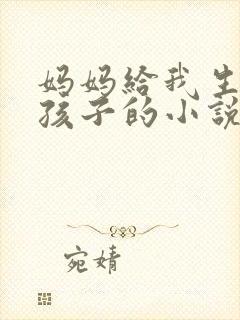 妈妈給我生
孩子的小說
宛婧